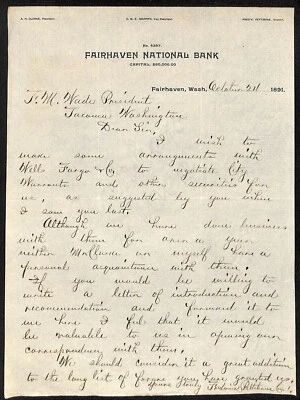 No. 4387
FAIRHAVEN NATIONAL BANK
CAPITAL, $50,000.00
Fairhaven, Wash, October 21 1891.
T. M. Wade President
Tacoma Washington
Dear Sir,
I wish to
make some arrangements with
Wells Fargo & Co to negotiate City
Warrants and other securities for
us, as suggested by you when
I saw you last.
Although we have done business
with them for over a year
neither Mr or myself have a
personal acquaintance with them.
If you would be willing to
write a letter of introduction and
recommendation and forward it to
me here I feel that it would
be valuable to us in opening our
correspondence with them.
We should consider it a great addition
to the long list of favors you have granted us.
Yours Truly